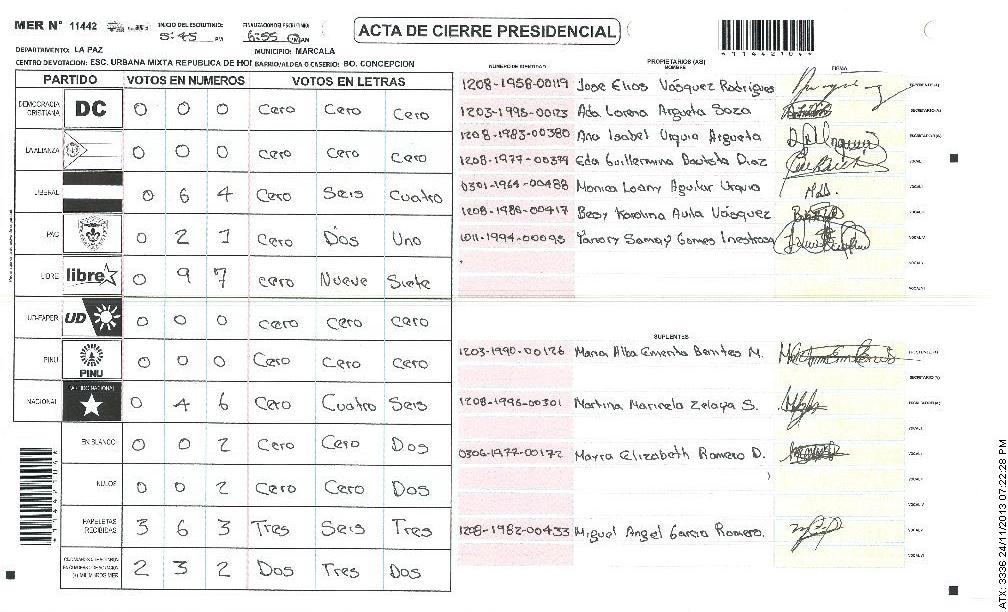 MER N° 11442
INICIO DEL ESCRUTINIO:
5:45 PM
FINALIZACION DEL ESCRUTINIO:
6:55
ACTA DE CIERRE PRESIDENCIAL
DEPARTAMENTO: LA PAZ
MUNICIPIO: MARCALA
CENTRO DE VOTACION: ESC. URBANA MIXTA REPUBLICA DE HOI BARRIO/ALDEA O CASERIO: BO. CONCEPCION
PARTIDO VOTOS EN NUMEROS VOTOS EN LETRAS
DEMOCRACIA CRISTIANA DC 0 0 0 Cero Cero Cero
LA ALIANZA 0 0 0 Cero Cero Cero
LIBERAL 0 6 4 Cero Seis Cuatro
PAC 0 2 1 Cero Dos Uno
LIBRE libre 0 9 7 Cero Nueve Siete
UD-FAPER UD 0 0 0 Cero Cero Cero
PINU PINU 0 0 0 Cero Cero Cero
NACIONAL PARTIDO NACIONAL 0 4 6 Cero Cuatro Seis
EN BLANCO 0 0 2 Cero Cero Dos
NULOS 0 0 2 Cero Cero Dos
PAPELETAS RECIBIDAS 3 6 3 Tres Seis Tres
2 3 2 Dos Tres Dos
PROPIETARIOS (AS)
NUMERO DE IDENTIDAD NOMBRE FIRMA
1208-1958-00119 Jose Elias Vásquez Rodrigues
1203-1995-00123 Ada Lorena Argueta Soza
1208-1983-00380 Ana Isabel Urquia Argueta
1208-1977-00379 Eda Guillermina Bautista Diaz
0301-1964-00488 Monica Loany Aguilar Urquia
1208-1986-00417 Besy Karolina Avila Vásquez
1011-1994-00095 Yanory Samay Gomes Inestroza
SUPLENTES
1203-1990-00126 Maria Alba Emerita Benites M.
1208-1996-00301 Martina Marinela Zelaya S.
0306-1977-00172 Mayra Elizabeth Romero D.
1208-1982-00433 Miguel Angel Garcia Romero.
11442104
ATX: 3336 24/11/2013 07:22:28 PM